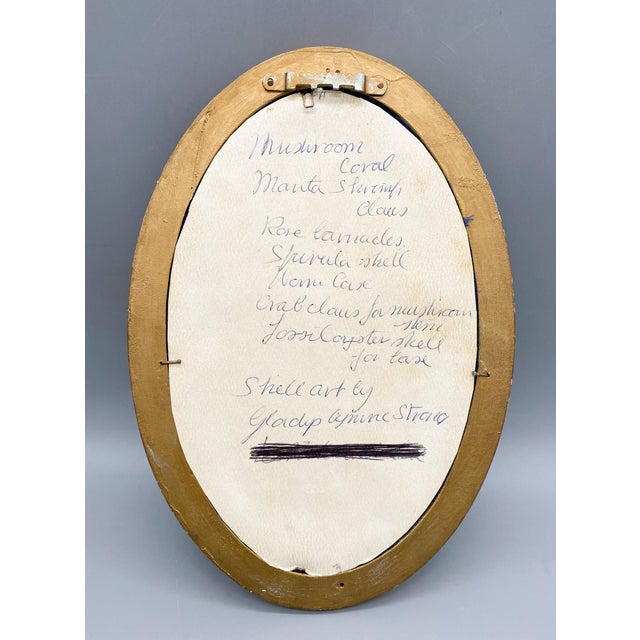 Mushroom
Coral
Manta Shrimp
Claws
Rose barnacles
Spirula shell
Worm Case
Crab claws for mushroom
stem
fossil oyster shell
for base
Shell art by
Gladys Strong